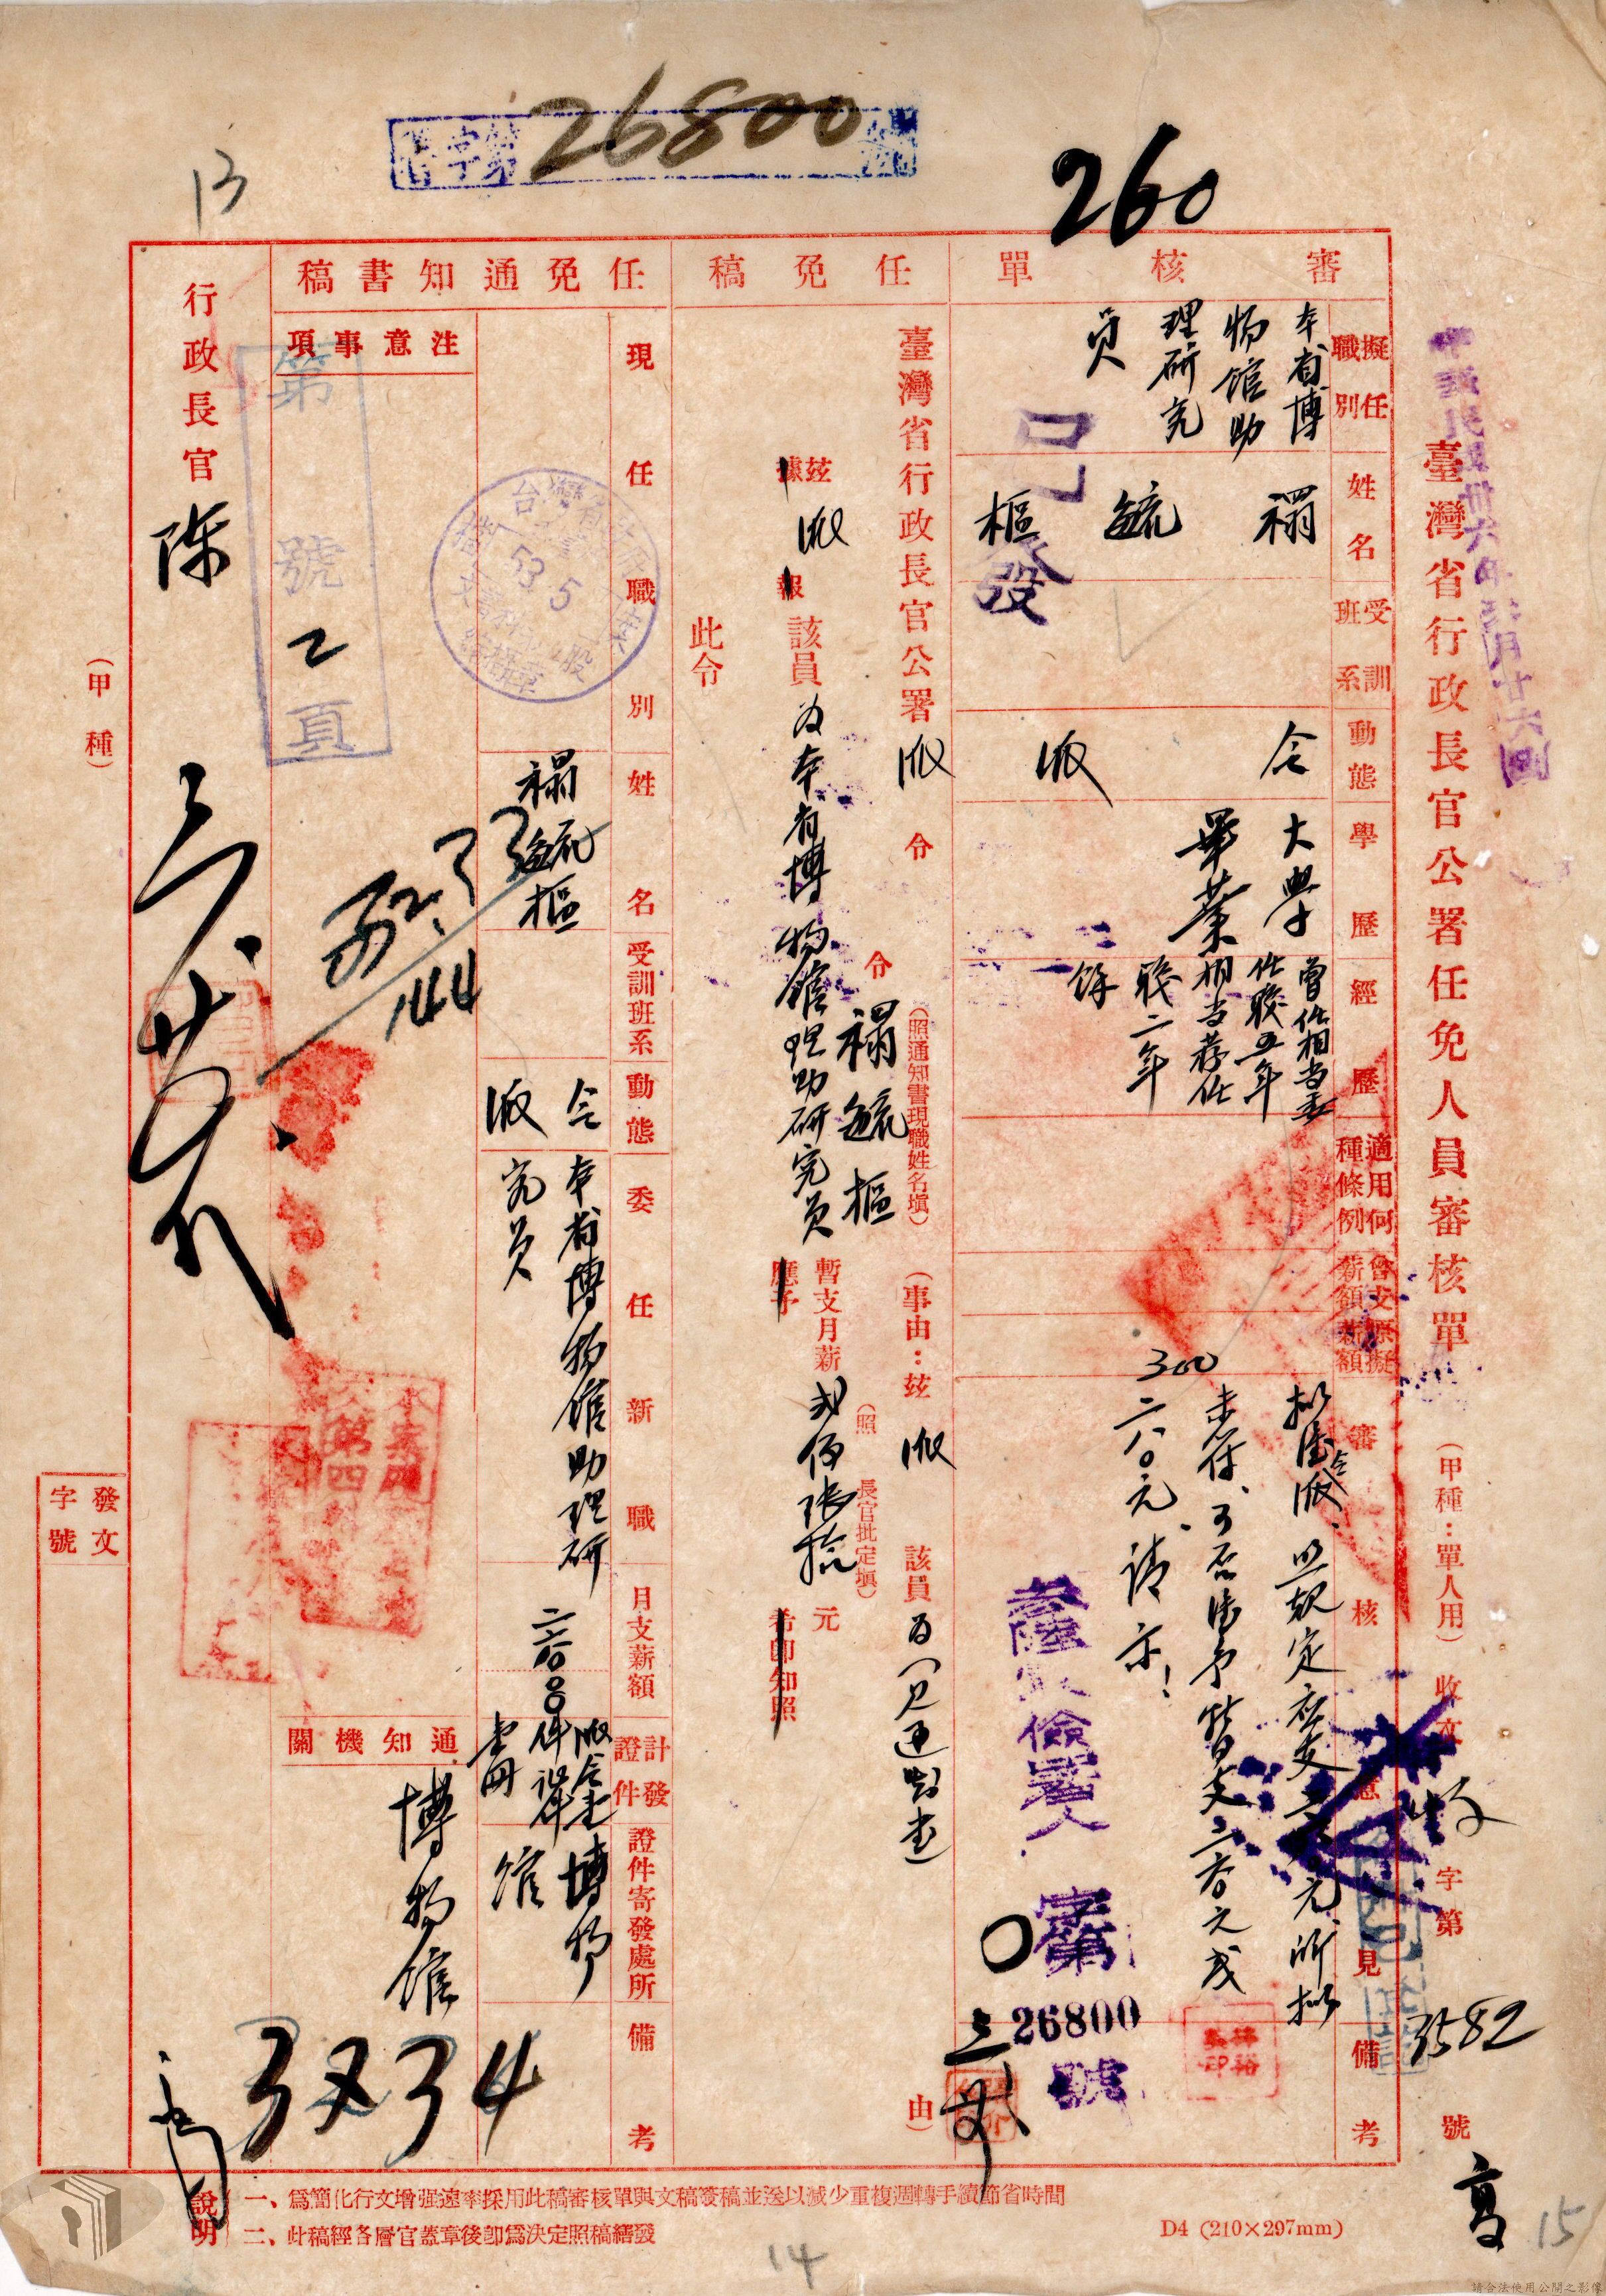 26800
260
13
中華民國卅六年
臺灣省行政長官公署任免人員審核單
(甲種:單人用)
收文
字第
3582
號
審核單
擬任職別
本省博物館助理研究員
姓名
禤毓樞
受訓班系
動態
令派
學歷
大學畢業
經歷
曾任相当委任職五年相当荐任職二年餘
適用何種條例
曾支薪額
原擬薪額
300
審核意見
未符、可否准予暫支二六〇元或
二八〇元、請示!
備考
已發
字第
26800
號
任免稿
臺灣省行政長官公署派令
令
禤毓樞
(照通知書現職姓名填)
(事由:茲派該員為(見通知書)由)
茲派該員為本省博物館理助研究員
據報
暫支月薪貳佰陸拾元
(照長官批定填)
應予
希卽知照
此令
任免通知書稿
現任職別
姓名
禤毓樞
受訓班系
動態
令派
委任新職
本省博物館助理研究員
月支薪額
二六〇
計發證件
證件寄發處所
博物館
備考
注意事項
第號2頁
53.5
通知機關
博物館
3234
行政長官
陳
(甲種)
發文字號
說明
一、爲簡化行文增强速率採用此稿審核單與文稿簽稿並送以減少重複週轉手續節省時間
二、此稿經各層官蓋章後卽爲決定照稿繕發
D4 (210×297mm)
14
15
請合法使用公開之影像